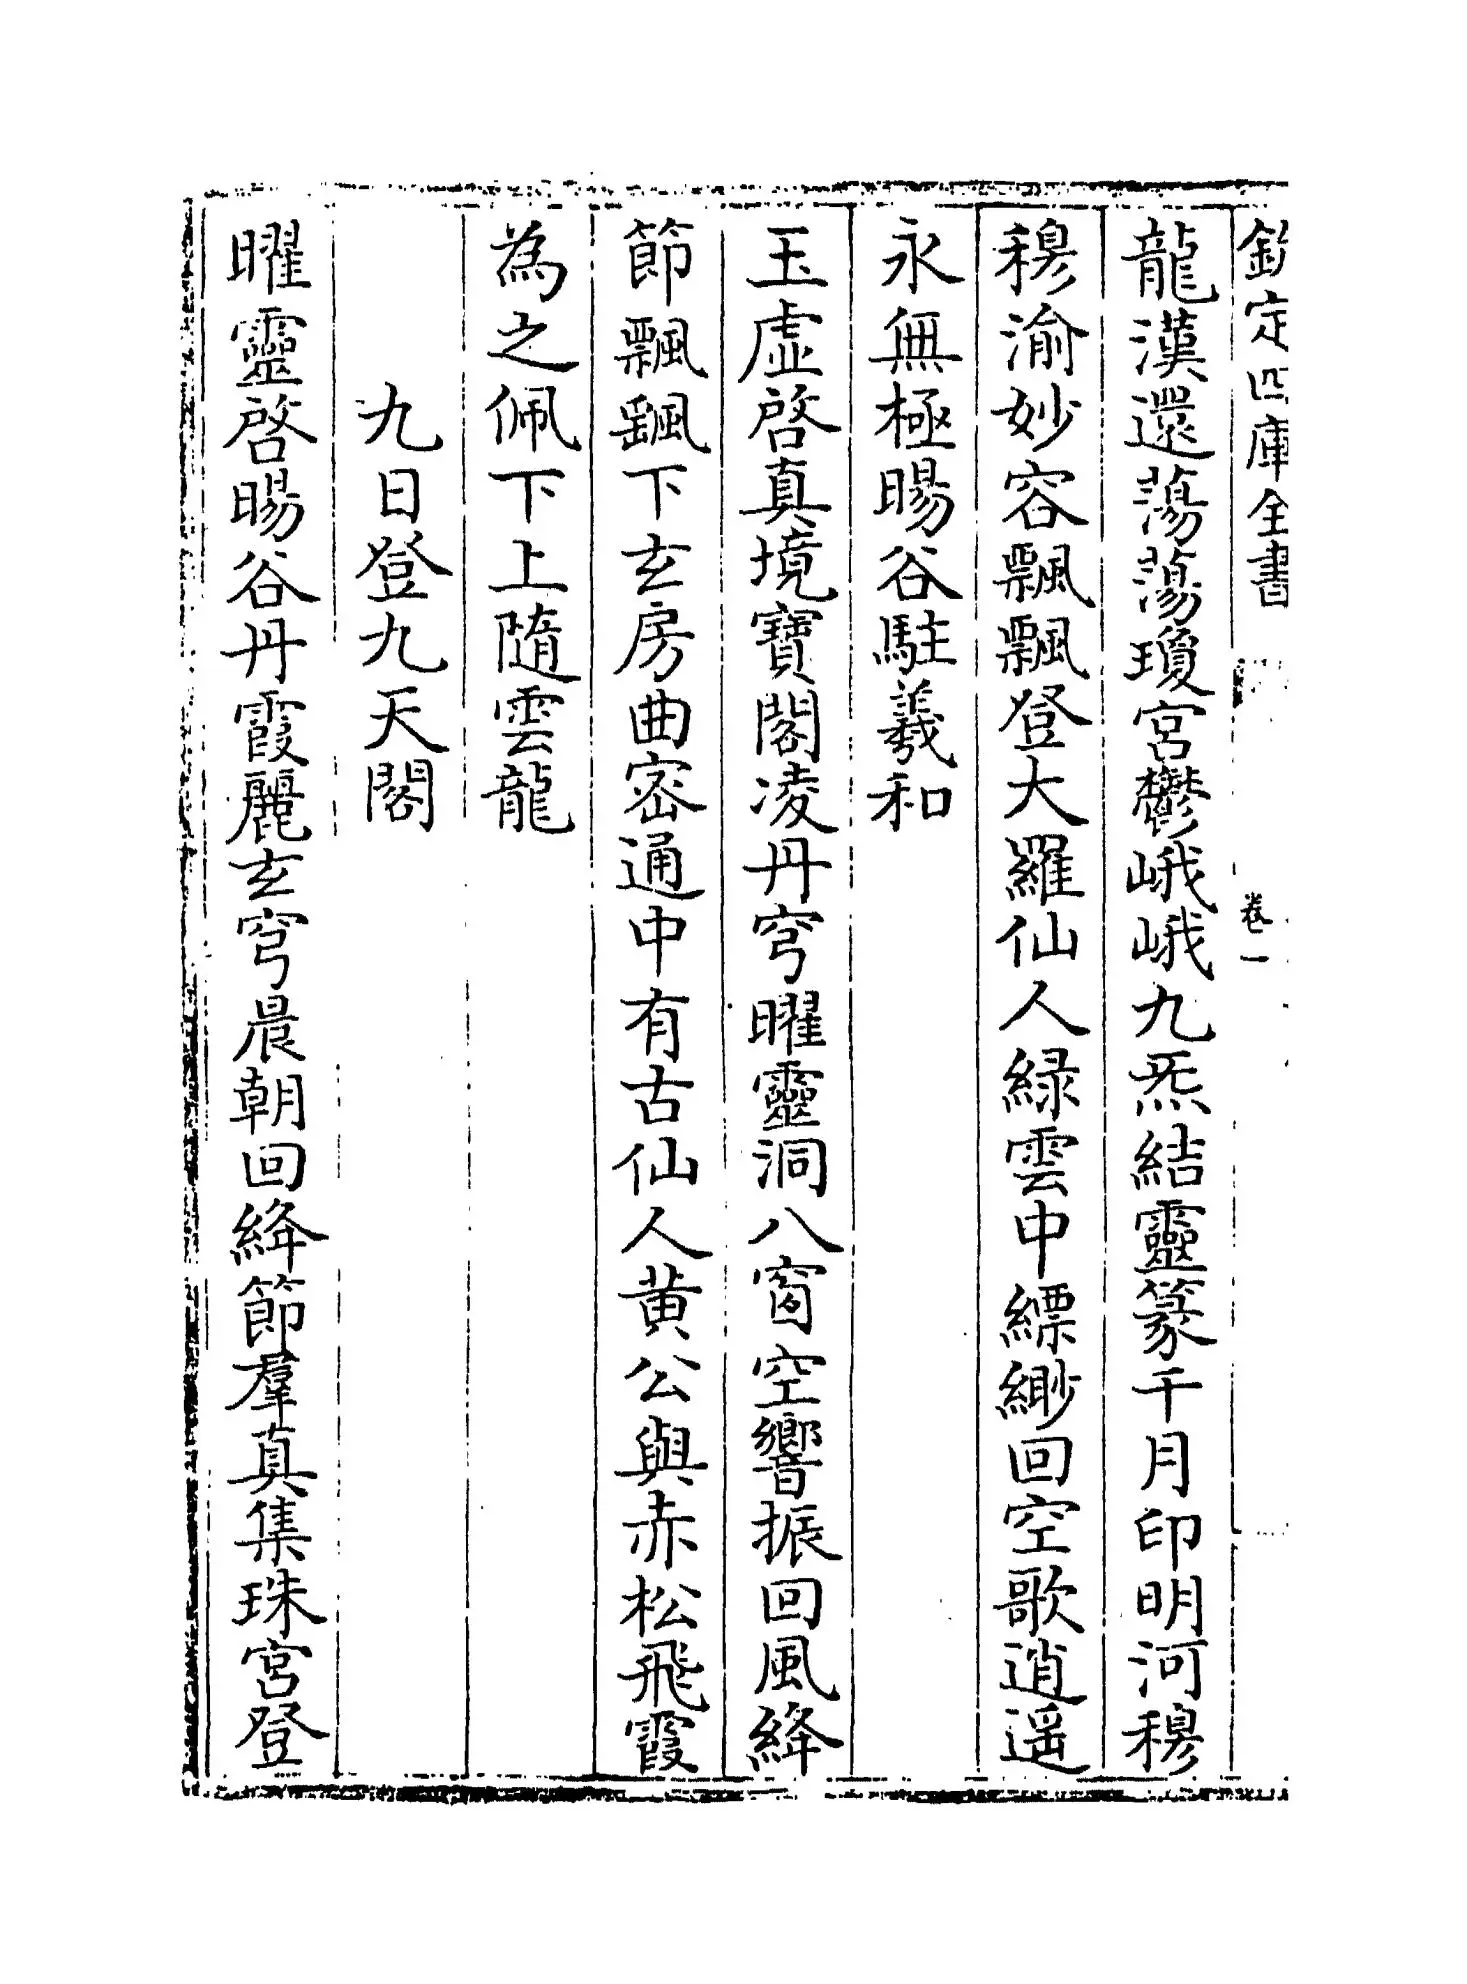 欽定四庫全書
卷一
龍漢還蕩蕩瓊宮鬱峨峨九炁結靈篆千月印明河穆
穆渝妙容飄飄登大羅仙人綠雲中縹緲回空歌逍遥
永無極暘谷駐羲和
玉虛啓真境寶閣凌丹穹曜靈洞八窗空響振回風絳
節飄颻下玄房曲密通中有古仙人黄公與赤松飛霞
為之佩下上隨雲龍
九日登九天閣
曜靈啓暘谷丹霞麗玄穹晨朝回絳節羣真集珠宮登